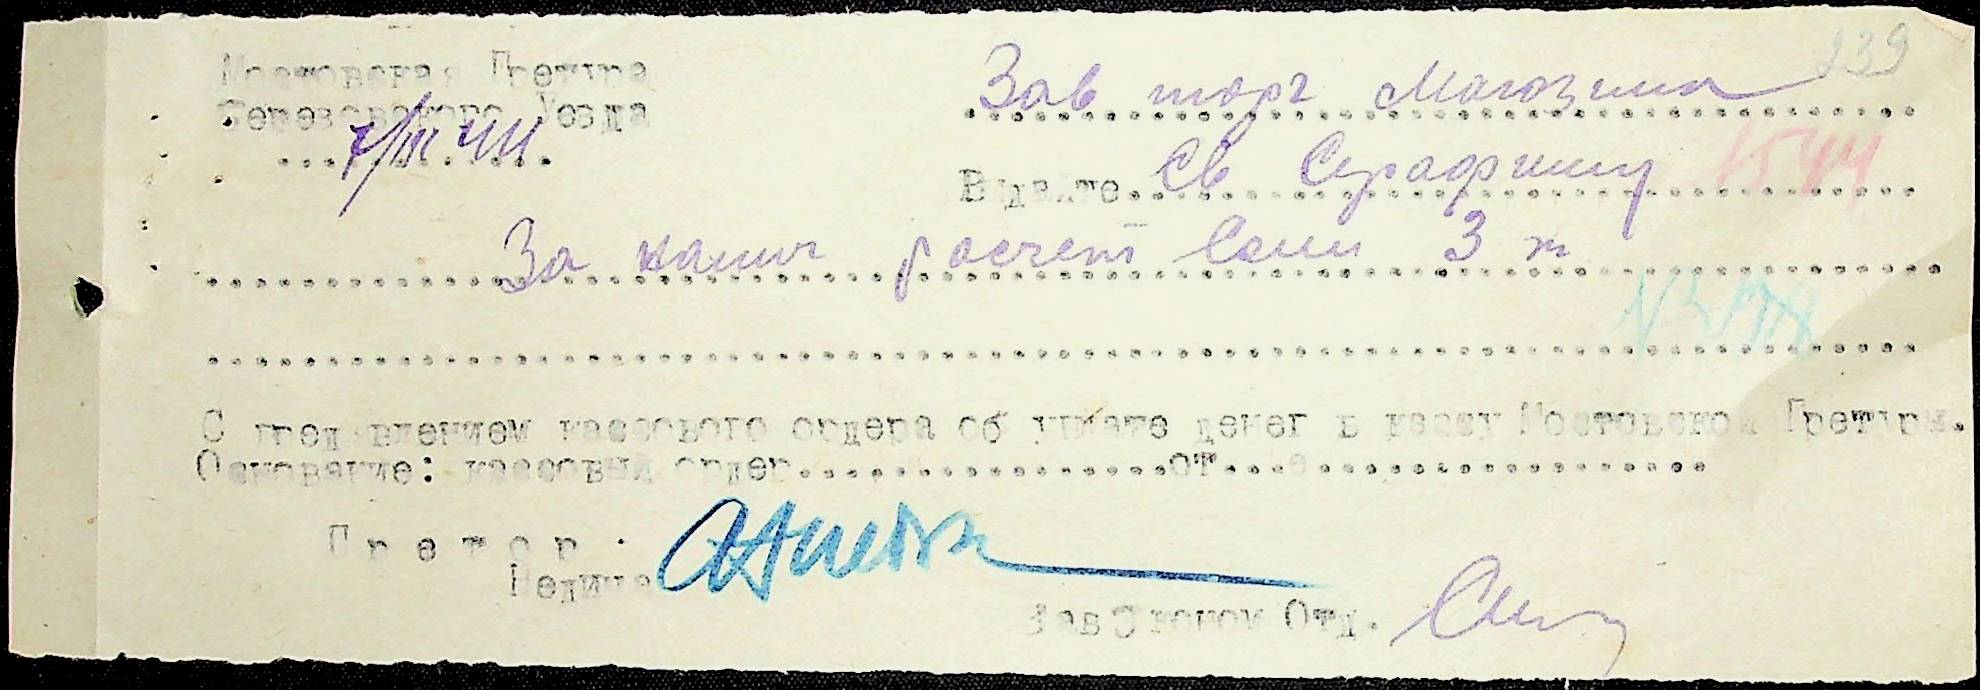 339
Мостовская Претура
Березовского Уезда
7/III 44
Зав. торг Магозина
Выдайте Св Серафиму
1544
За налич расчет Соли 3 т
С пред влением кассового ордера об уплате денег в кассу Мостовской Претуры.
Основание: кассовый ордер от
Претор
Зав Эконом Отд.